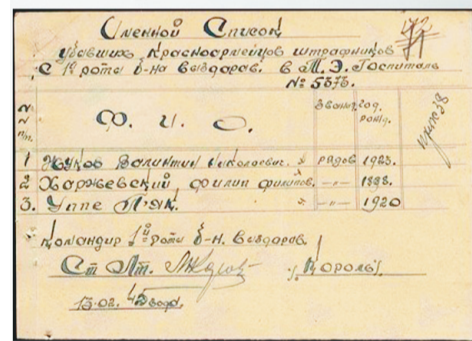 Именной Список
убывших, красноармейцев штрафников
с роты б-на выздорав. в Т. Э. Госпиталь
№ 5575.
№ № пп. Ф. И. О. Зван. год рожд.
1 Жуков Валинтин Николаевич. рядов 1923.
2 Харжевский, Филип Филипов. -〃- 1898.
3. Уппе -〃- 1920
Командир 1й роты б-н. Выздорав.
Ст Лт. /Король/
13.02.45 года.